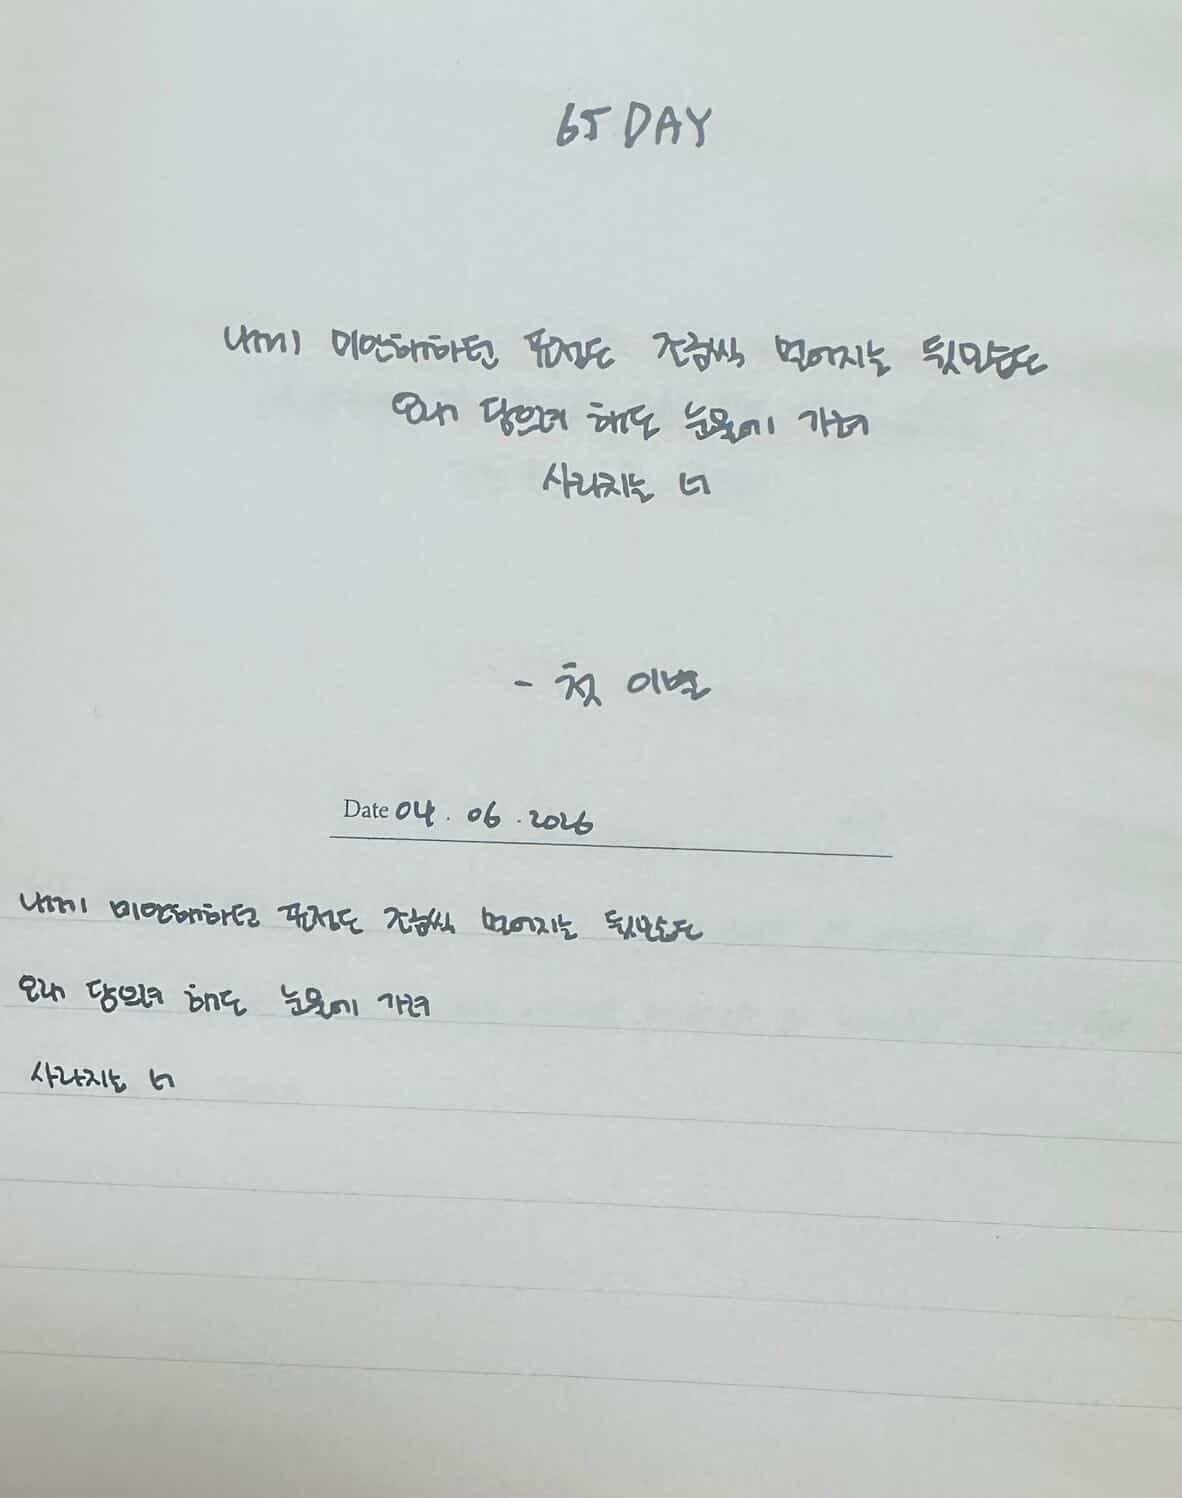 65 DAY
내게 미안해하던 표정도 조금씩 멀어지는 뒷모습도
오래 담으려 해도 눈물에 가려
사라지는 너
- 첫 이별
Date 04 . 06 . 2026
내게 미안해하던 표정도 조금씩 멀어지는 뒷모습도
오래 담으려 해도 눈물에 가려
사라지는 너